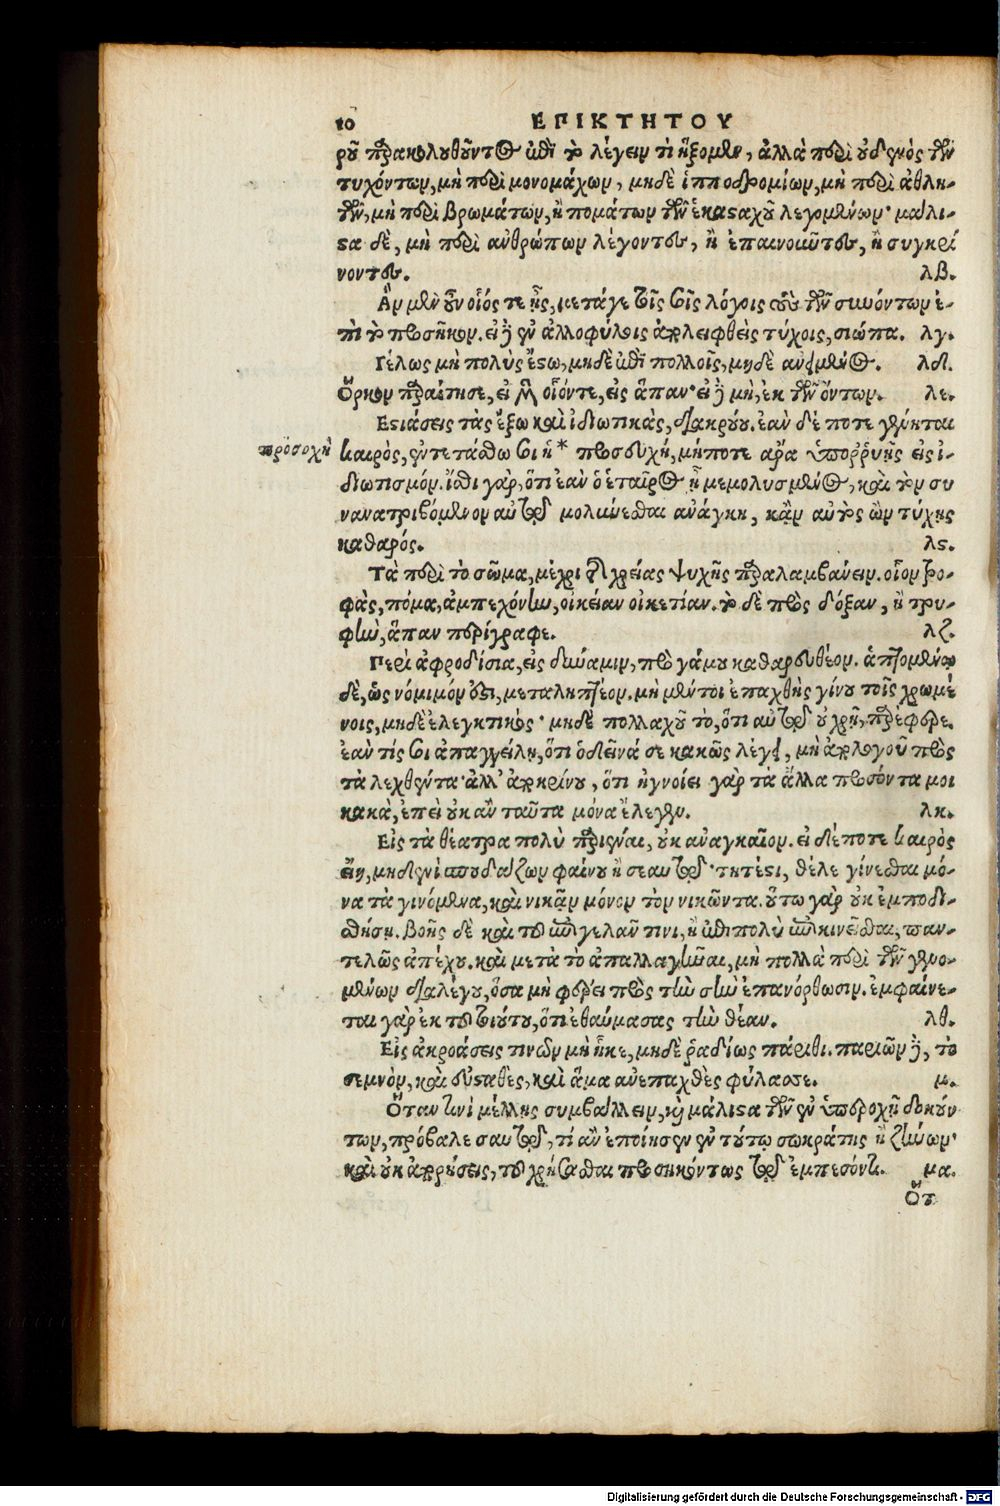 10 ΕΠΙΚΤΗΤΟΥ
ροῦ παρακαλοῦντος ἐπὶ τὸ λέγειν τι ἥξομεν, ἀλλὰ περὶ οὐδενὸς τῶν
τυχόντων, μὴ περὶ μονομάχων, μηδὲ ἱπποδρομίων, μὴ περὶ ἀθλη-
τῶν, μὴ περὶ βρωμάτων, ἢ πομάτων τῶν ἑκασαχοῦ λεγομένων· μάλι-
στα δὲ, μὴ περὶ ἀνθρώπων λέγοντας, ἢ ἐπαινοῦντας, ἢ συγκρί
νοντας. λβ.
Ἂν μὲν οὖν οἷός τε ᾖς, μετάγε τοῖς σοῖς λόγοις καὶ τῶν συνόντων ἐ-
πὶ τὸ προσῆκον. εἰ δὲ ἐν ἀλλοφύλοις ἀπολειφθεὶς τύχοις, σιώπα. λγ.
Γέλως μὴ πολὺς ἔστω, μηδὲ ἐπὶ πολλοῖς, μηδὲ ἀνειμένος. λδ.
Ὅρκον παραίτησαι, εἰ μὲν οἷόντε, εἰς ἅπαν· εἰ δὲ μὴ, ἐκ τῶν ὄντων. λε.
Ἑστιάσεις τὰς ἔξω καὶ ἰδιωτικὰς, διακρούου. ἐὰν δέ ποτε γένηται
προσοχὴ
καιρὸς, ἐντετάσθω σοι ἡ* προσευχή, μήποτε ἄρα ὑπορρυῇς εἰς ἰ-
διωτισμόν. ἴσθι γὰρ, ὅτι ἐὰν ὁ ἑταῖρος ᾖ μεμολυσμένος, καὶ τὸν συ
νανατριβόμενον αὐτῷ μολύνεσθαι ἀνάγκη, κἂν αὐτὸς ὢν τύχῃς
καθαρός. λς.
Τὰ περὶ τὸ σῶμα, μέχρι τῆς χρείας ψυχῆς παραλαμβάνειν. οἷον τρο-
φὰς, πόμα, ἀμπεχόνην, οἰκείαν οἰκετίαν. τὸ δὲ πρὸς δόξαν, ἢ τρυ-
φὴν, ἅπαν περίγραφε. λζ.
Περὶ ἀφροδίσια, εἰς δύναμιν, πρὸ γάμου καθαρευθέον. ἁπτομένῳ
δὲ, ὡς νόμιμόν ἐστι, μεταληπτέον. μὴ μέντοι ἐπαχθὴς γίνου τοῖς χρωμέ
νοις, μηδὲ ἐλεγκτικὸς· μηδὲ πολλαχοῦ τὸ, ὅτι αὐτὸς οὐ χρῇ, παρέφερε.
ἐάν τίς σοι ἀπαγγείλῃ, ὅτι ὁ δεῖνά σε κακῶς λέγει, μὴ ἀπολογοῦ πρὸς
τὰ λεχθέντα· ἀλλ’ ἀποκρίνου, ὅτι ἠγνόει γὰρ τὰ ἄλλα προσόντα μοι
κακὰ, ἐπεὶ οὐκ ἂν ταῦτα μόνα ἔλεγεν. λη.
Εἰς τὰ θέατρα πολὺ παριέναι, οὐκ ἀναγκαῖον. εἰ δέ ποτε καιρὸς
εἴη, μηδενὶ σπουδάζων φαίνου ἢ σεαυτῷ· τητέστι, θέλε γίνεσθαι μό-
να τὰ γινόμενα, καὶ νικᾶν μόνον τὸν νικῶντα. οὕτω γὰρ οὐκ ἐμποδι-
σθήσῃ. βοῆς δὲ καὶ τοῦ ἐπιγελᾶν τινι, ἢ ἐπὶ πολὺ συγκινεῖσθαι, παν-
τελῶς ἀπέχου. καὶ μετὰ τὸ ἀπαλλαγῆναι, μὴ πολλὰ περὶ τῶν γενο-
μένων διαλέγου, ὅσα μὴ φέρει πρὸς τὴν σὴν ἐπανόρθωσιν. ἐμφαίνε-
ται γὰρ ἐκ τοῦ τοιούτου, ὅτι ἐθαύμασας τὴν θέαν. λθ.
Εἰς ἀκροάσεις τινῶν μὴ ἧκε, μηδὲ ῥαδίως πάριθι. παριὼν δὲ, τὸ
σεμνὸν, καὶ εὐσταθὲς, καὶ ἅμα ἀνεπαχθὲς φύλασσε. μ.
Ὅταν τινὶ μέλλῃς συμβάλλειν, καὶ μάλιστα τῶν ἐν ὑπεροχῇ δοκούν
των, πρόβαλε σαυτῷ, τί ἂν ἐποίησεν ἐν τούτῳ σωκράτης ἢ ζήνων·
καὶ οὐκ ἀπορήσεις, τοῦ χρήσασθαι προσηκόντως τῷ ἐμπεσόντι. μα.
Ὅτ
Digitalisierung gefördert durch die Deutsche Forschungsgemeinschaft - DFG